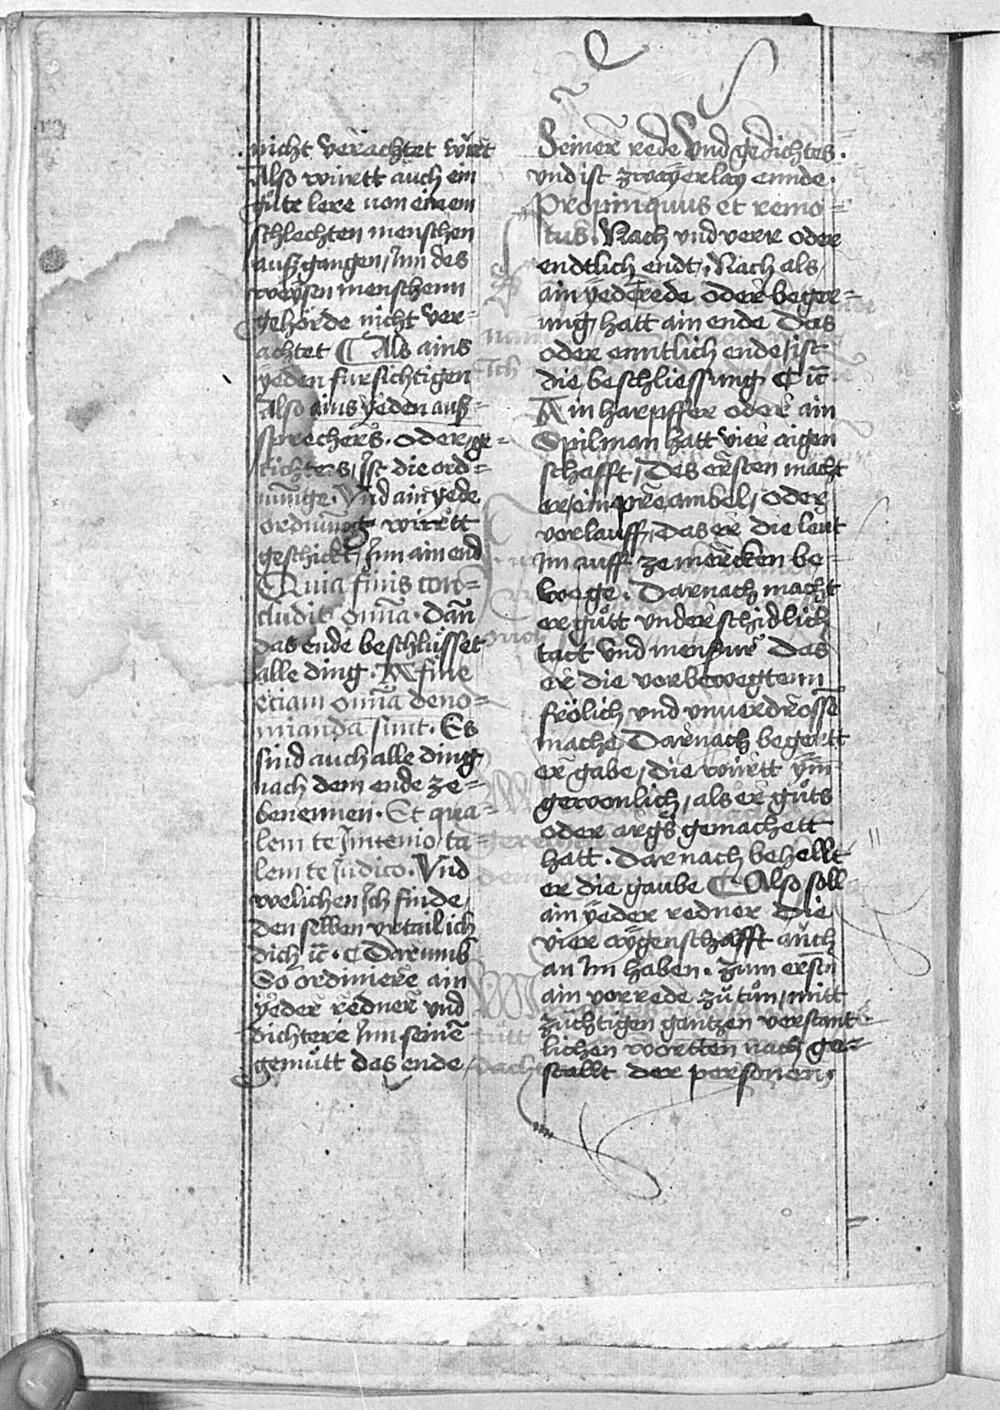 nicht verachtet wirt
Also wurtt auch ein
gůte lere von einem
schlechten menschen
außgangen / Inn des
weysen menschenn
gehörde nicht ver-
achtet ¶ Als ains
yeden fürsichtigen
Also ains yeden auß-
sprechers . oder ge-
tichters / Ist die ord-
nunge . Vnd ain yede
ordnung wirtt
geschickt / Inn ain end
Quia finis con-
cludit om̄a . Dan̄
das ende beschlüsset
alle ding . A fine
etiam om̄ia deno-
minanda sunt . Es
sind auch alle ding
nach dem ende ze-
benennen . Et qua-
lem te Inuenio / ta-
lem te Iudico . Vnd
welichen Ich finde /
den selben vrtail ich
dich ꝛc̄ . ¶ Darumb
So ordiniere ain
yeder redner vnd
dichtere Inn seinē
gemůtt das ende /
Seiner rede Vnd gedichtes .
vnd ist zwayerlay ennde .
Propinquus et remo-
tus . Nach vnd verr oder
endtlich endt . Nach als /
ain yede rede oder beger-
ung / hatt ain ende Das
oder enntlich ende / ist
die beschliessung ¶ ꝛc̄ .
Ain harpffer oder ain
Spilman hatt vier aigen
schafft / Des ersten macht
er / ein preambel / oder
vorlauff / das er die leut
Im auff ze mercken be-
wege . Darnach macht
er gůtt vnderschidlich
tact vnd mensur Das
er die vorbewegtenn
frölich vnd vnuerdrosse
mache / Darnach begertt
er gabe / die württ ym
gewonlich / als er gůts
oder args gemachett
hatt . Darnach behellt
er die gaube ¶ Also soll
ain yeder redner Die
vier aygenschafft auch
an Im haben . Zum ersten
ain vorrede zů tůn / mitt
züchtigen gantzen verstant-
lichen wortten nach ge-
stallt der personen .